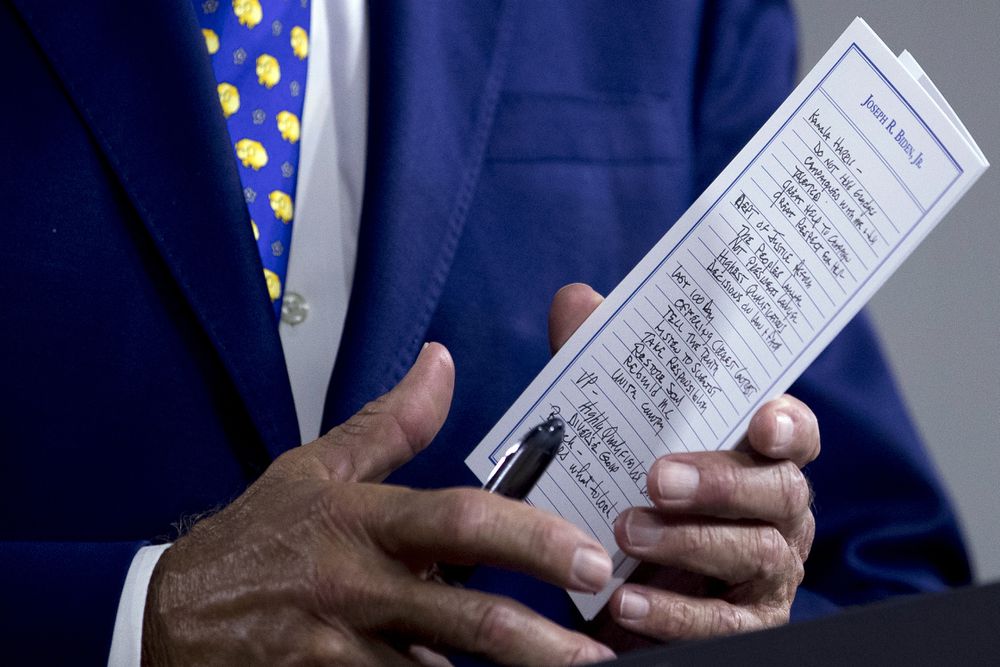 JOSEPH R. BIDEN, JR.
KAMALA HARRIS -
DO NOT HOLD GRUDGES
CAMPAIGNED WITH ME & JILL
TALENTED
GREAT HELP TO CAMPAIGN
GREAT RESPECT FOR HER
DEPT OF JUSTICE
THE PEOPLES LAWYER
NOT PRESIDENTS LAWYER
HIGHEST QUALIFICATIONS
DECISIONS ON LAW &
LAST 100 DAY
TELL THE TRUTH
LISTEN TO SCIENTIST
TAKE RESPONSIBILITY
RESTORE SOUL
REBUILD M.C
UNITE COUNTRY
VP - HIGHLY QUALIFIED
DIVERSE GROUP
WHAT TO